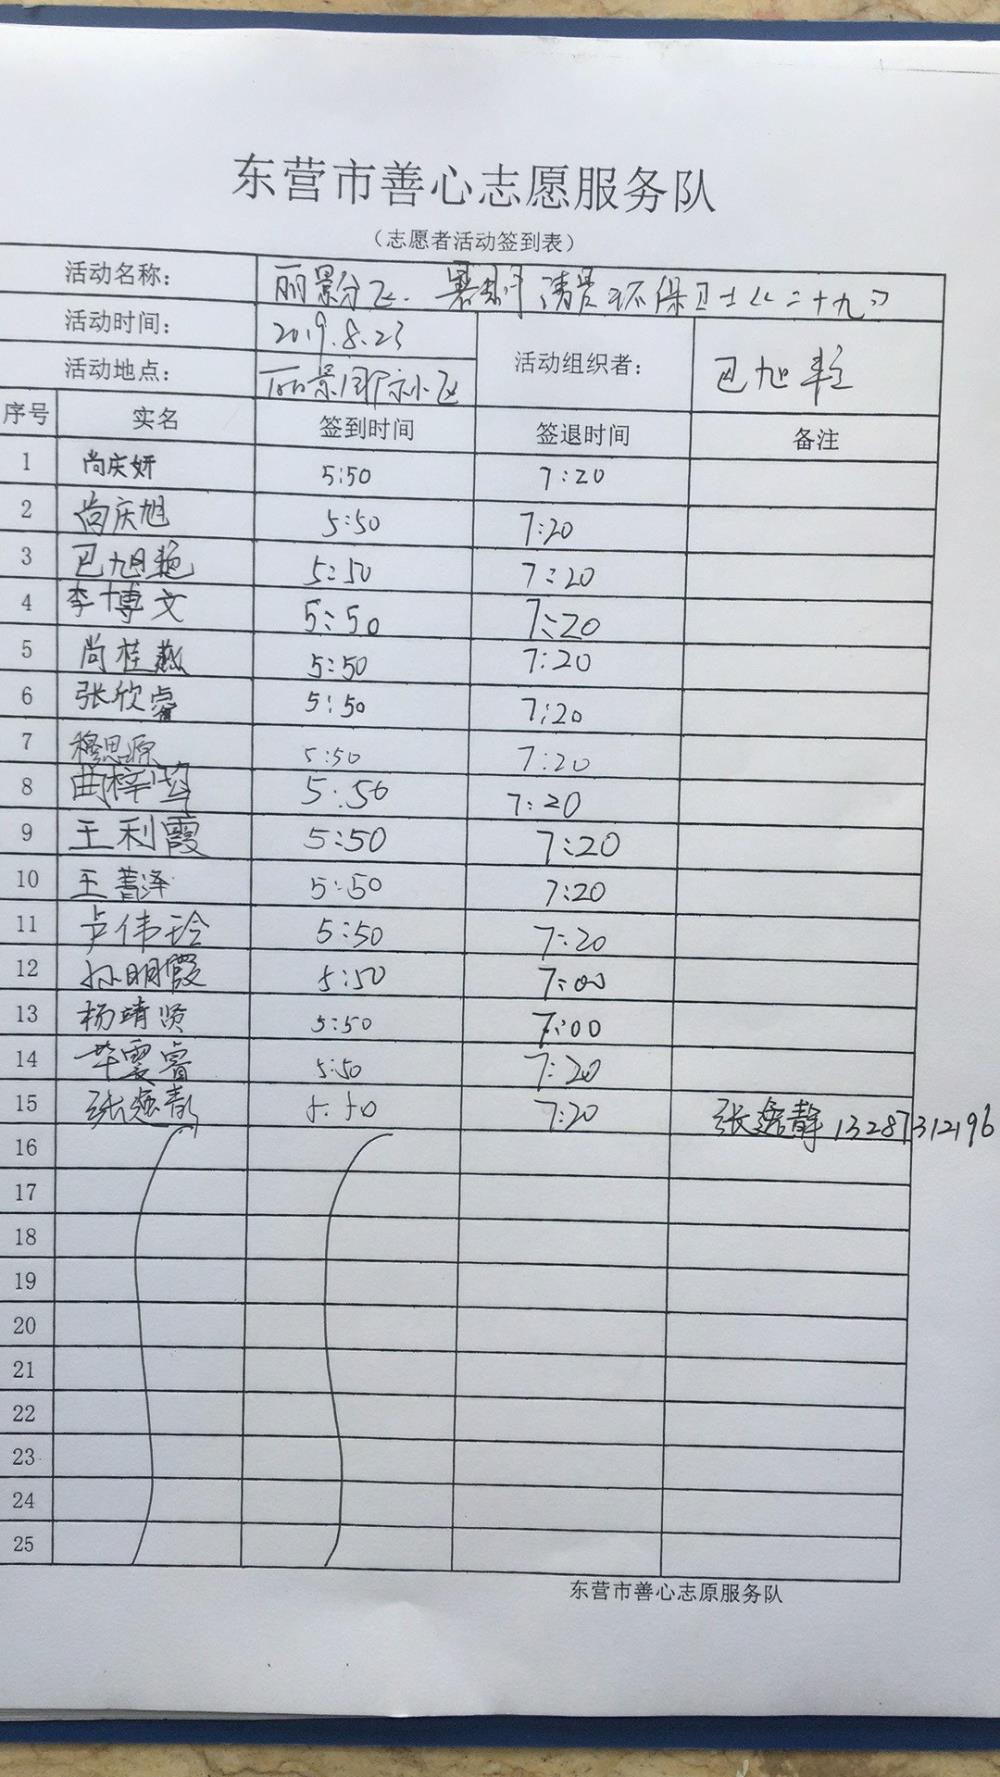 东营市善心志愿服务队
（志愿者活动签到表）
活动名称： 丽景分队. 暑期 清晨环保卫士《二十九》
活动时间： 2019.8.23
活动地点： 丽景 小区 活动组织者： 巴旭
序号 实名 签到时间 签退时间 备注
1 尚庆妍 5:50 7:20
2 尚庆旭 5:50 7:20
3 巴旭艳 5:50 7:20
4 李博文 5:50 7:20
5 尚桂燕 5:50 7:20
6 张欣睿 5:50 7:20
7 穆思源 5:50 7:20
8 曲梓 5:50 7:20
9 王利霞 5:50 7:20
10 王善泽 5:50 7:20
11 卢伟玲 5:50 7:20
12 孙明霞 5:50 7:00
13 杨靖贤 5:50 7:00
14 毕雯睿 5:50 7:20
15 张 静 5:50 7:20 张 静 13287312196
16
17
18
19
20
21
22
23
24
25
东营市善心志原服务队